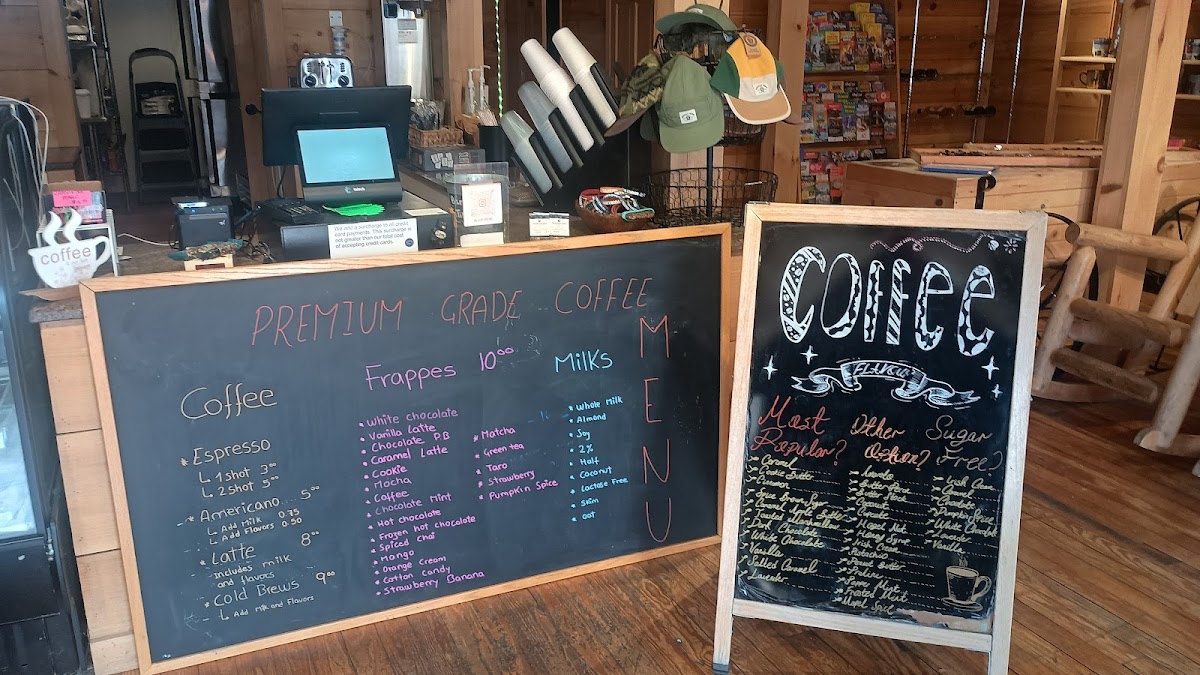 coffee
We add a surcharge to all credit
card payments. This surcharge is
not greater than our total cost
of accepting credit cards.
PREMIUM GRADE COFFEE
MENU
Coffee
* Espresso
↳ 1 shot 3.00
↳ 2 shot 5.00
* Americano 5.00
↳ Add Milk 0.75
↳ Add Flavors 0.50
* Latte 8.00
includes milk
and flavors
* Cold Brews 9.00
↳ Add Milk and Flavors
Frappes 10.00
* White chocolate
* Vanilla Latte
* Chocolate P.B
* Caramel Latte
* Cookie
* Mocha
* Coffee
* Chocolate Mint
* Hot chocolate
* Frozen hot chocolate
* Spiced Chai
* Mango
* Orange Cream
* Cotton Candy
* Strawberry Banana
* Matcha
* Green tea
* Taro
* Strawberry
* Pumpkin Spice
Milks
* Whole Milk
* Almond
* Soy
* 2%
* Half
* Coconut
* Lactose Free
* Skim
* oat
Coffee
Most
Popular?
Caramel
Cookie Butter
Cinnamon
Dark Chocolate
White Chocolate
Vanilla
Salted Caramel
Lavender
Other
Hazel Nut
Irish Cream
Pistachio
Peanut Butter
Frosted Mint
Sugar
Free?
Irish Cream
Caramel
Pumpkin Spice
White Chocolate
Lavender
Vanilla